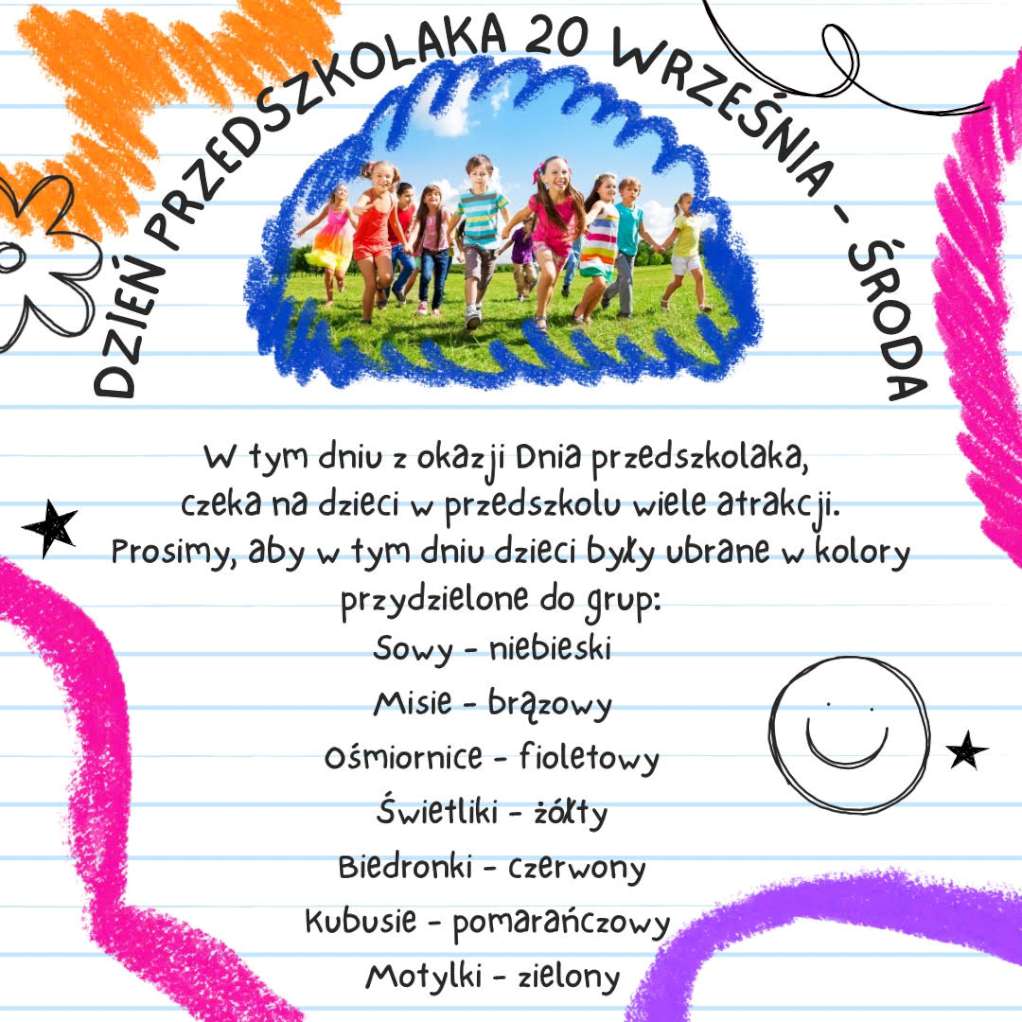 DZIEŃ PRZEDSZKOLAKA 20 WRZEŚNIA - ŚRODA
W tym dniu z okazji Dnia przedszkolaka,
czeka na dzieci w przedszkolu wiele atrakcji.
Prosimy, aby w tym dniu dzieci były ubrane w kolory
przydzielone do grup:
Sowy - niebieski
Misie - brązowy
Ośmiornice - fioletowy
Świetliki - żółty
Biedronki - czerwony
Kubusie - pomarańczowy
Motylki - zielony